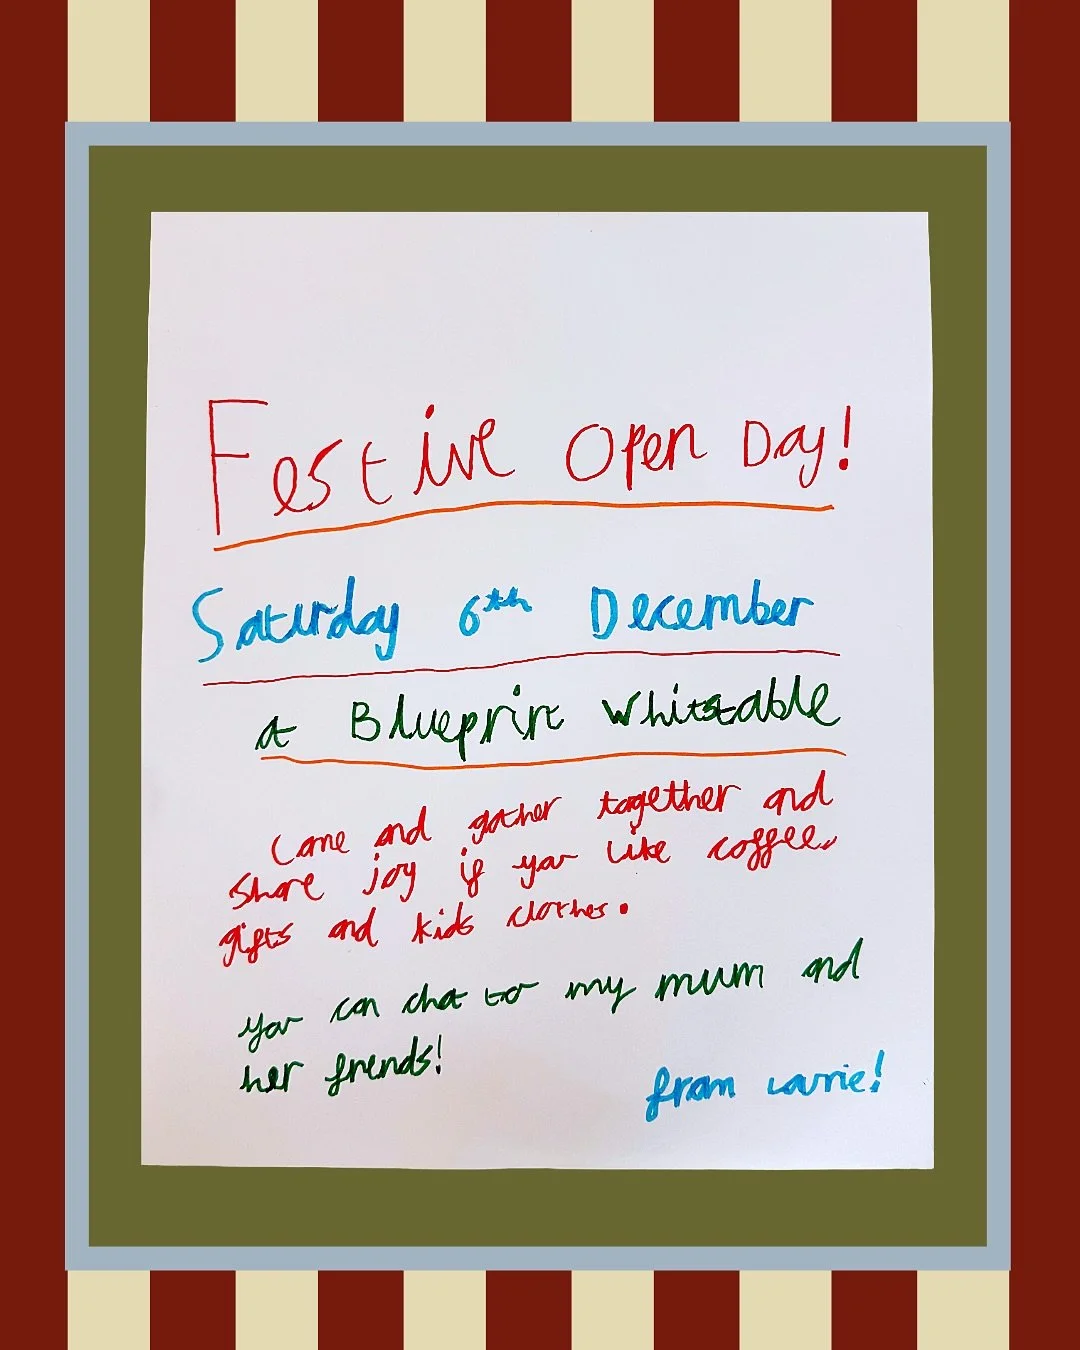 Festive Open Day!
Saturday 6th December
at Blueprint Whitstable
Come and gather together and
share joy if you like coffee,
gifts and kids clothes.
you can chat to my mum and
her friends!
from Laurie!